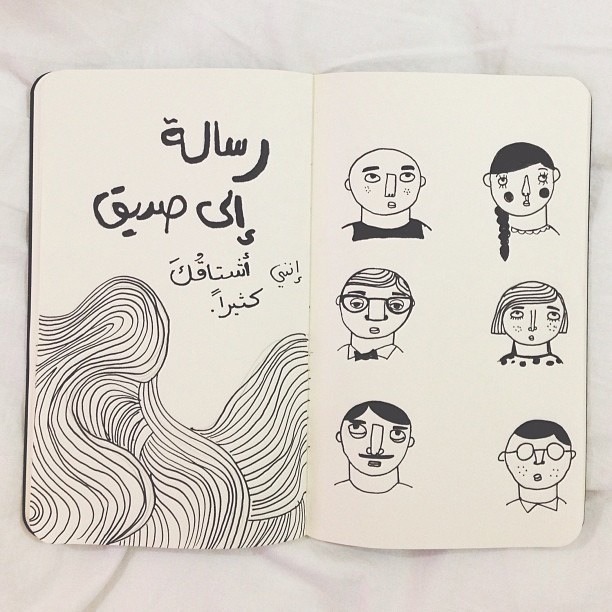 رسالة
إلى صديق
إنني أشتاقُكَ
كثيراً.